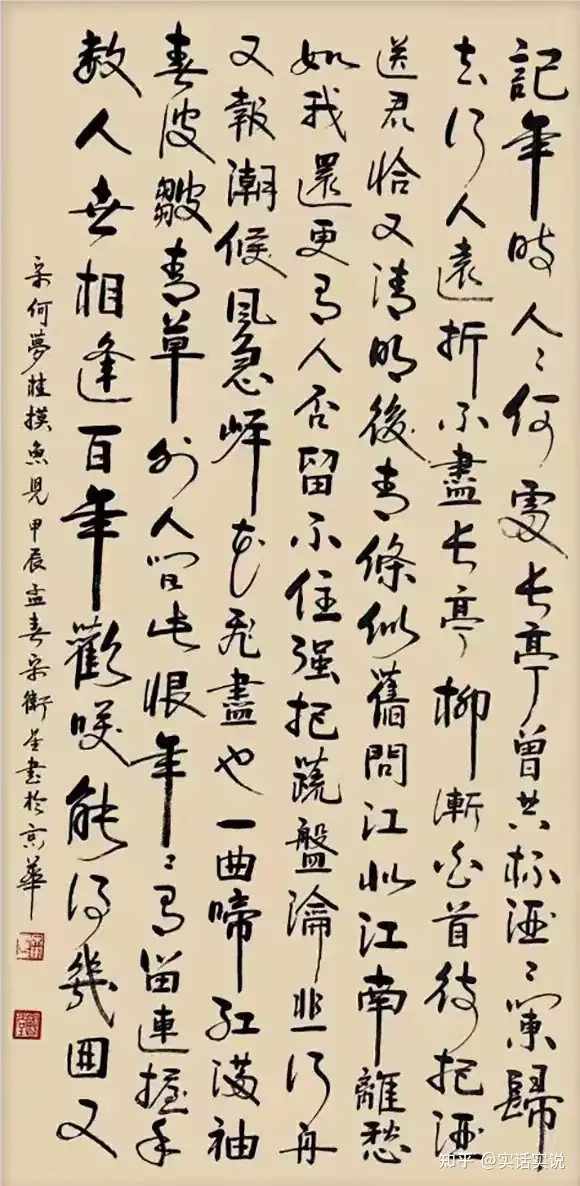 記年時人〻何處長亭曾共杯酒〻闌歸
去行人遠折不盡長亭柳漸白首待把酒
送君恰又清明後青條似舊問江北江南離愁
如我還更有人否留不住强把蔬盤瀹韭行舟
又報潮候風急岸花飛盡也一曲啼紅滿袖
春波皺青草外人間此恨年〻有留連握手
數人世相逢百年歡笑能得幾回又
宋何夢桂摸魚兒甲辰孟春宋衛星書於京華
知乎 @实话实说